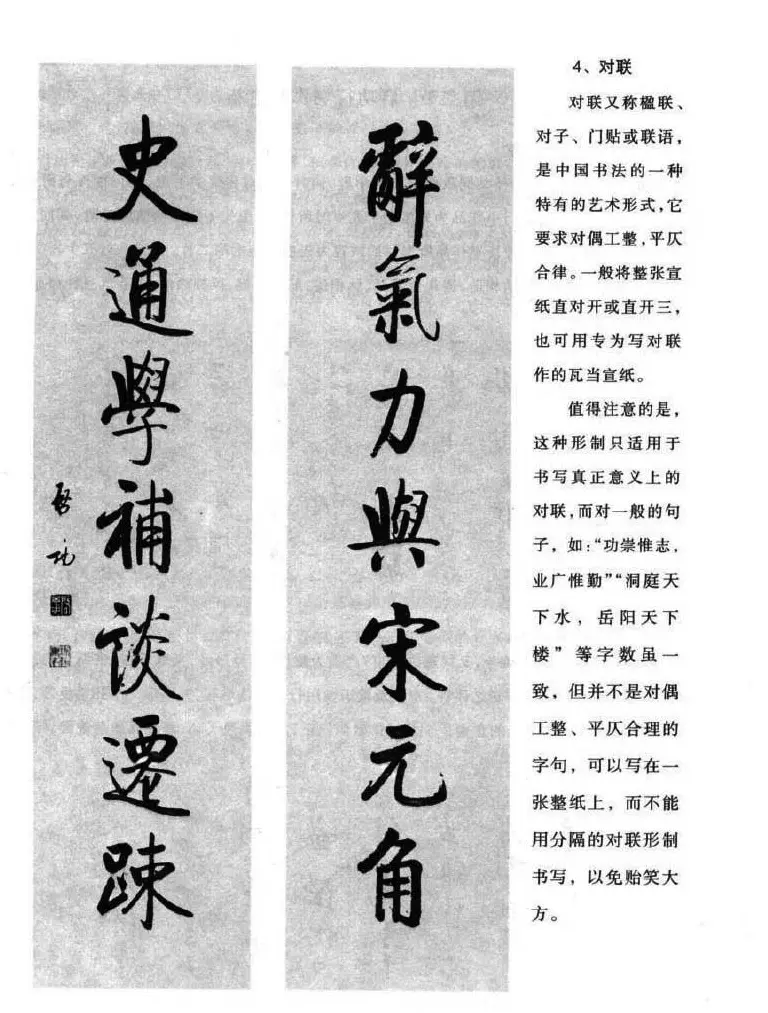 4、对联
对联又称楹联、
对子、门贴或联语，
是中国书法的一种
特有的艺术形式，它
要求对偶工整，平仄
合律。一般将整张宣
纸直对开或直开三，
也可用专为写对联
作的瓦当宣纸。
值得注意的是，
这种形制只适用于
书写真正意义上的
对联，而对一般的句
子，如：“功崇惟志，
业广惟勤”“洞庭天
下水，岳阳天下
楼”等字数虽一
致，但并不是对偶
工整、平仄合理的
字句，可以写在一
张整纸上，而不能
用分隔的对联形制
书写，以免贻笑大
方。
辭氣力與宋元角
史通學補談遷踈
啓功